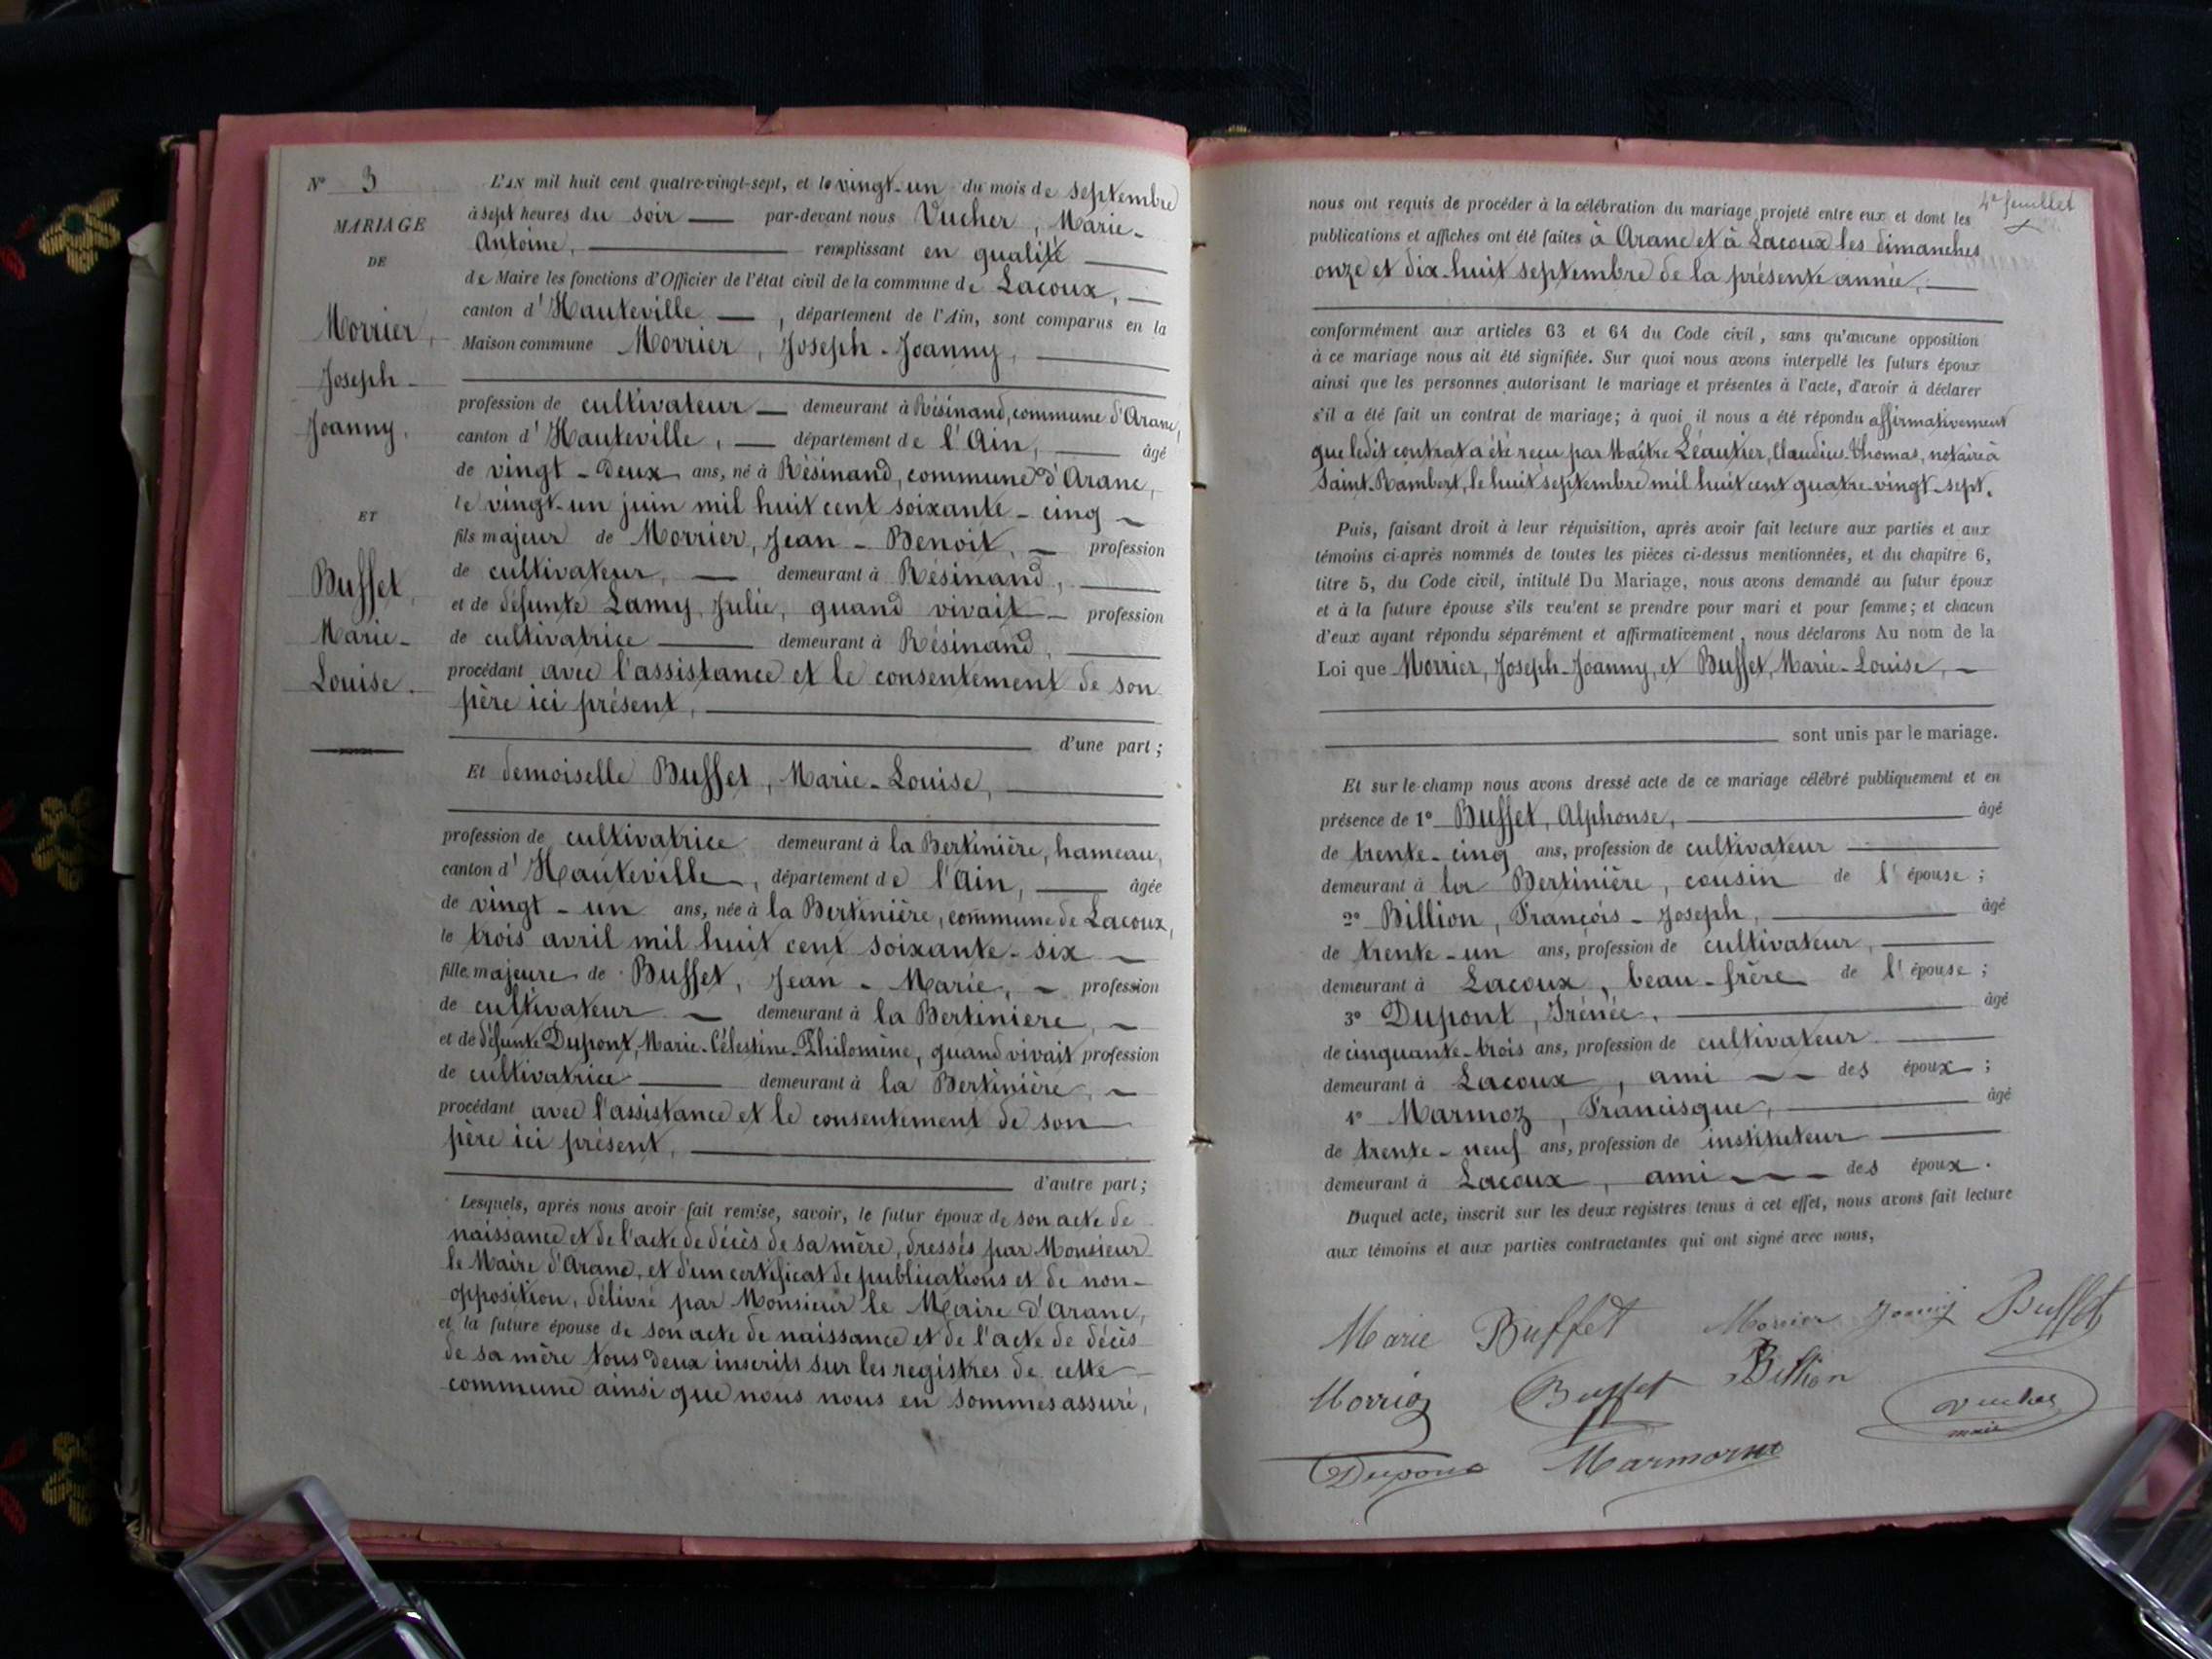 N° 3
MARIAGE
DE
Morrier,
Joseph-
Joanny.
ET
Buffet,
Marie-
Louise.
L'AN mil huit cent quatre-vingt-sept, et le vingt-un du mois de septembre
à sept heures du soir — par-devant nous Vucher, Marie-
Antoine, — remplissant en qualité —
de Maire les fonctions d'Officier de l'état civil de la commune de Lacoux, —
canton d'Hauteville —, département de l'Ain, sont comparus en la
Maison commune Morrier, Joseph-Joanny, —
profession de cultivateur — demeurant à Résinand, commune d'Aranc,
canton d'Hauteville, — département de l'Ain, — âgé
de vingt-deux ans, né à Résinand, commune d'Aranc,
le vingt-un juin mil huit cent soixante-cinq —
fils majeur de Morrier, Jean-Benoit, — profession
de cultivateur, — demeurant à Résinand, —
et de défunte Lamy, Julie, quand vivait — profession
de cultivatrice — demeurant à Résinand, —
procédant avec l'assistance et le consentement de son
père ici présent, —
d'une part ;
Et demoiselle Buffet, Marie-Louise, —
profession de cultivatrice demeurant à la Bertinière, hameau,
canton d'Hauteville —, département de l'Ain, — âgée
de vingt-un ans, née à la Bertinière, commune de Lacoux,
le trois avril mil huit cent soixante-six —
fille majeure de Buffet, Jean-Marie, — profession
de cultivateur — demeurant à la Bertiniere, —
et de défunte Dupont, Marie-Célestine-Philomène, quand vivait profession
de cultivatrice — demeurant à la Bertinière, —
procédant avec l'assistance et le consentement de son
père ici présent, —
d'autre part ;
Lesquels, après nous avoir fait remise, savoir, le futur époux de son acte de
naissance et de l'acte de décès de sa mère, dressés par Monsieur
le Maire d'Aranc, et d'un certificat de publications et de non-
opposition, délivré par Monsieur le Maire d'Aranc,
et la future épouse de son acte de naissance et de l'acte de décès
de sa mère tous deux inscrits sur les registres de cette
commune ainsi que nous nous en sommes assuré,
4e feuillet
nous ont requis de procéder à la célébration du mariage projeté entre eux et dont les
publications et affiches ont été faites à Aranc et à Lacoux les dimanches
onze et dix-huit septembre de la présente année, —
conformément aux articles 63 et 64 du Code civil, sans qu'aucune opposition
à ce mariage nous ait été signifiée. Sur quoi nous avons interpellé les futurs époux
ainsi que les personnes autorisant le mariage et présentes à l'acte, d'avoir à déclarer
s'il a été fait un contrat de mariage ; à quoi il nous a été répondu affirmativement
que ledit contrat a été reçu par Maître Léautier, Claudius-Thomas, notaire à
Saint-Rambert, le huit septembre mil huit cent quatre-vingt-sept.
Puis, faisant droit à leur réquisition, après avoir fait lecture aux parties et aux
témoins ci-après nommés de toutes les pièces ci-dessus mentionnées, et du chapitre 6,
titre 5, du Code civil, intitulé Du Mariage, nous avons demandé au futur époux
et à la future épouse s'ils veu'ent se prendre pour mari et pour femme ; et chacun
d'eux ayant répondu séparément et affirmativement, nous déclarons Au nom de la
Loi que Morrier, Joseph-Joanny, et Buffet, Marie-Louise, —
sont unis par le mariage.
Et sur-le-champ nous avons dressé acte de ce mariage célébré publiquement et en
présence de 1° Buffet, Alphonse, — âgé
de trente-cinq ans, profession de cultivateur —
demeurant à la Bertinière, cousin de l'épouse ;
2° Billion, François-Joseph, — âgé
de trente-un ans, profession de cultivateur, —
demeurant à Lacoux, beau-frère de l'épouse ;
3° Dupont, Irénée, — âgé
de cinquante-trois ans, profession de cultivateur —
demeurant à Lacoux, ami — des époux ;
4° Marmoz, Francisque, — âgé
de trente-neuf ans, profession de instituteur —
demeurant à Lacoux, ami — des époux.
Duquel acte, inscrit sur les deux registres tenus à cet effet, nous avons fait lecture
aux témoins et aux parties contractantes qui ont signé avec nous,
Marie Buffet Morrier Joanny Buffet
Morrier Buffet Billion Vucher
maire
Dupont Marmoz